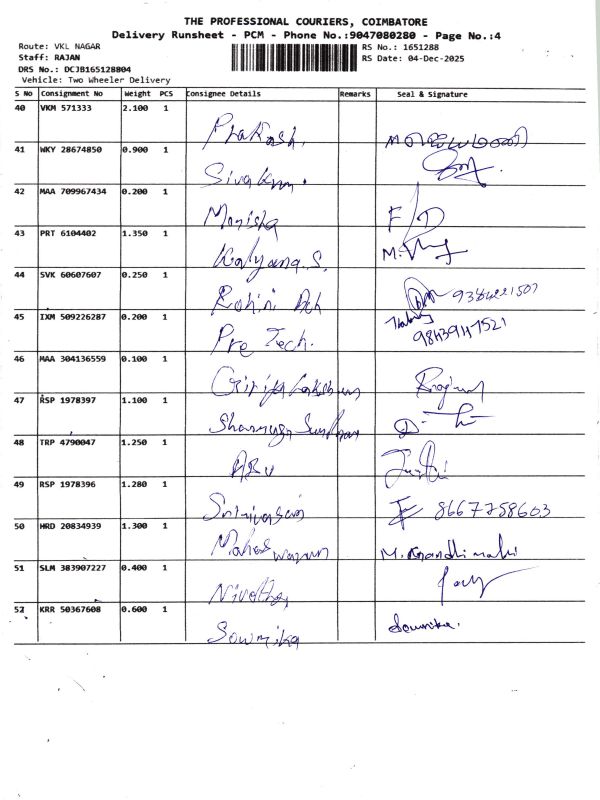 THE PROFESSIONAL COURIERS, COIMBATORE
Delivery Runsheet - PCM - Phone No.:9047080280 - Page No.:4
Route: VKL NAGAR RS No.: 1651288
Staff: RAJAN RS Date: 04-Dec-2025
DRS No.: DCJB165128804
Vehicle: Two Wheeler Delivery
S No Consignment No Weight PCS Consignee Details Remarks Seal & Signature
40 VKM 571333 2.100 1 Prakash.
41 WKY 28674850 0.900 1 Sivakumar.
42 MAA 709967434 0.200 1 Monisha F/D
43 PRT 6104402 1.350 1 Kalyana.S.
44 SVK 60607607 0.250 1 Rohini
45 IXM 509226287 0.200 1 Pre Tech. 9843947521
46 MAA 304136559 0.100 1 Girija Lakshman
47 RSP 1978397 1.100 1 Shanmuga Sundaram
48 TRP 4790047 1.250 1
49 RSP 1978396 1.280 1 Srinivasan 8667758603
50 HRD 20834939 1.300 1 Maheswaran
51 SLM 383907227 0.400 1 Nivetha
52 KRR 50367608 0.600 1 Sowmika Sowmika.